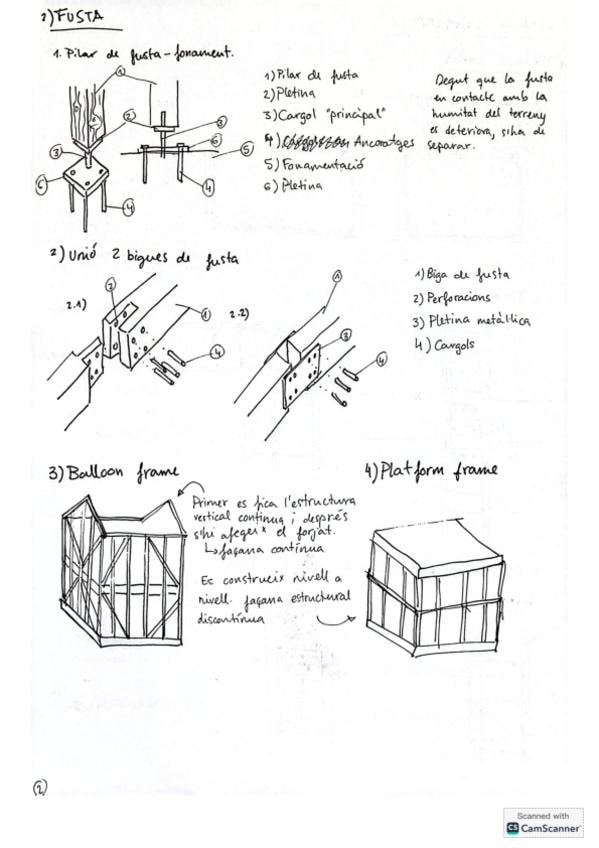 2) FUSTA
1. Pilar de fusta - fonament.
1) Pilar de fusta
2) Pletina
3) Cargol "principal"
4) Ancoratges
5) Fonamentació
6) Pletina
Degut que la fusta
en contacte amb la
humitat del terreny
es deteriora, s'ha de
separar.
1
2
3
6
4
3
6
5
4
2) Unió 2 bigues de fusta
2.1)
2
1
4
2.2)
1
3
4
1) Biga de fusta
2) Perforacions
3) Pletina metàl·lica
4) Cargols
3) Balloon frame
Primer es fica l'estructura
vertical continua i després
s'hi afegeix el forjat.
↳ façana contínua
Es construeix nivell a
nivell. façana estructural
discontínua
4) Platform frame
2
Scanned with
CS CamScanner